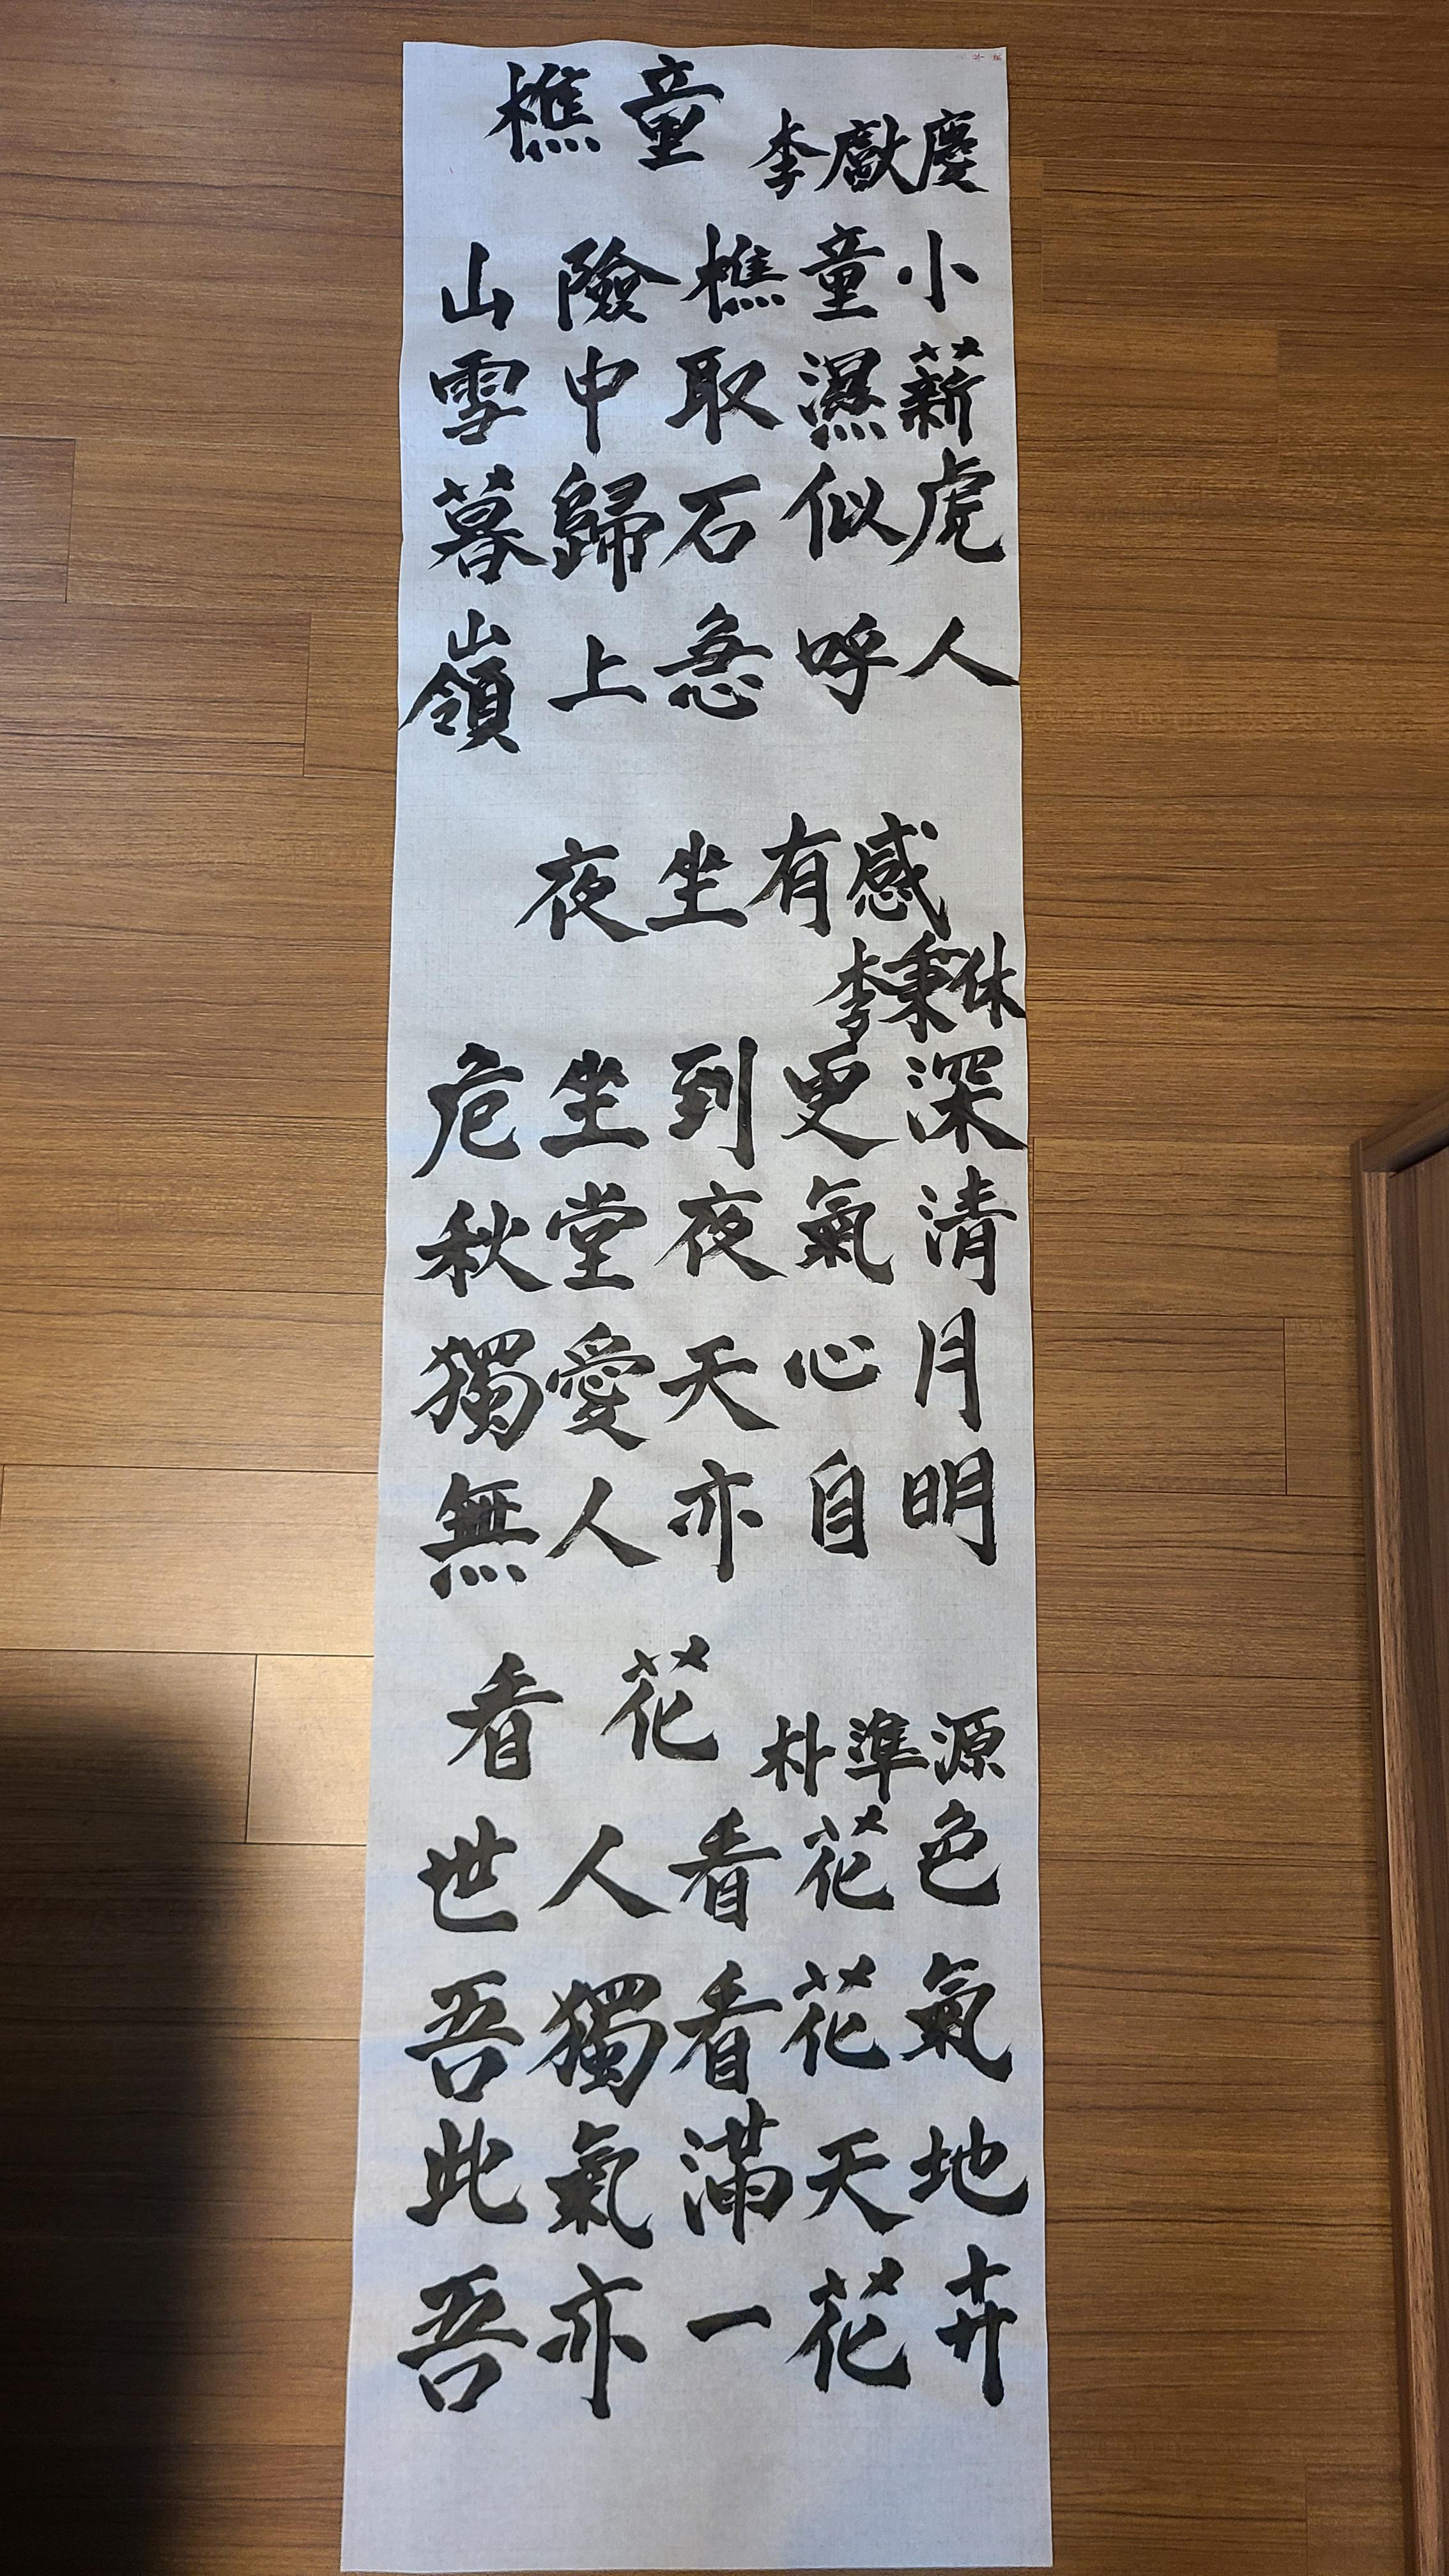 樵童 李獻慶
山險樵童小
雪中取濕薪
暮歸石似虎
嶺上急呼人
夜坐有感
李秉休
危坐到更深
秋堂夜氣清
獨愛天心月
無人亦自明
看花 朴準源
世人看花色
吾獨看花氣
此氣滿天地
吾亦一花卉